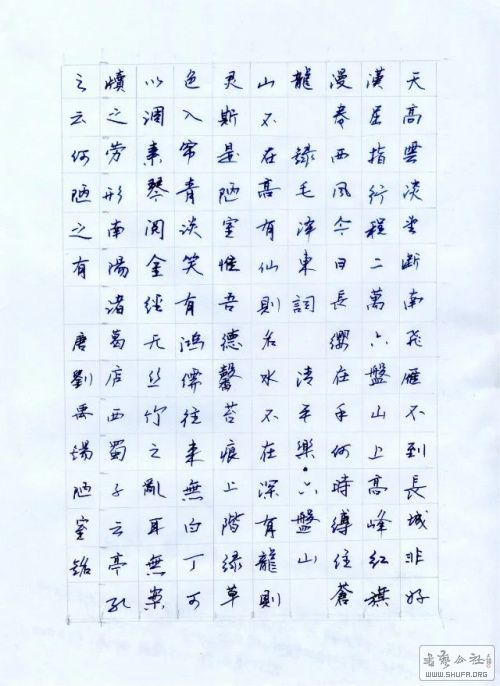 天高雲淡望斷南飛雁不到長城非好
漢屈指行程二萬六盤山上高峰紅旗
漫卷西風今日長纓在手何時縛住蒼
龍 録毛泽東詞 清平樂·六盤山
山不在高有仙則名水不在深有龍則
灵斯是陋室惟吾德馨苔痕上階绿草
色入帘青谈笑有鴻儒往来無白丁可
以调素琴阅金经无丝竹之亂耳無案
牘之劳形南陽诸葛庐西蜀子云亭孔
之云何陋之有 唐劉禹錫陋室銘
书艺公社
WWW.SHUFA.ORG